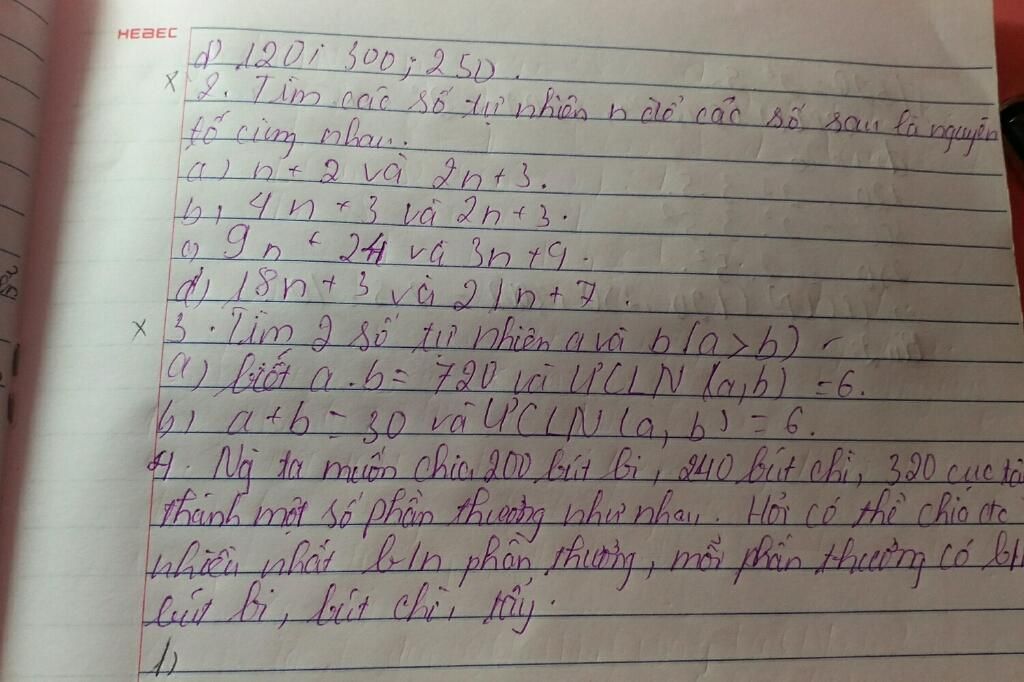 HEBEC
d) 120; 300; 250.
x 2. Tìm các số tự nhiên n để các số sau là nguyên
tố cùng nhau.
a) n + 2 và 2n + 3.
b, 4n + 3 và 2n + 3.
c) 9n + 24 và 3n + 9.
d), 18n + 3 và 21n + 7.
x 3. Tìm 2 số tự nhiên a và b (a > b)
a) biết a.b = 720 và ƯCLN (a, b) = 6.
b) a + b = 30 và ƯCLN (a, b) = 6.
4. Ng ta muốn chia 200 bút bi, 240 bút chì, 320 cục tẩ
thành một số phần thưởng như nhau. Hỏi có thể chia đc
nhiều nhất b/n phần thưởng, mỗi phần thưởng có b/n
bút bi, bút chì, tẩy.
1)